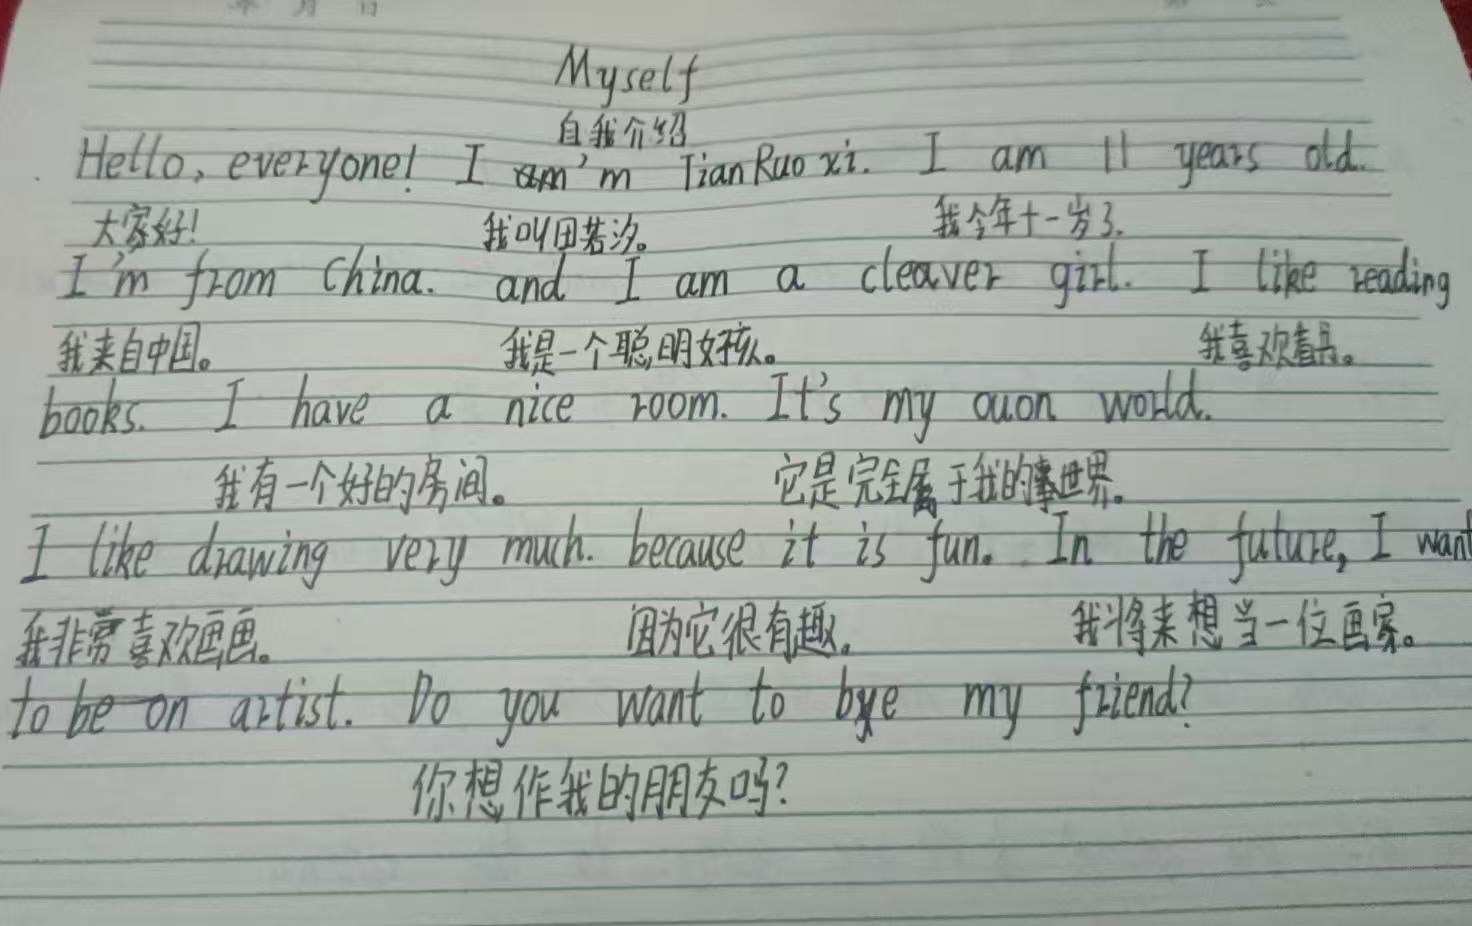 年 月 日
Myself
自我介绍
Hello, everyone! I am'm Tian Ruo xi. I am 11 years old.
大家好! 我叫田若汐。 我今年十一岁了.
I'm from China. and I am a cleaver girl. I like reading
我来自中国。 我是一个聪明女孩。 我喜欢看书。
books. I have a nice room. It's my ouon world.
我有一个好的房间。 它是完全属于我的世界。
I like drawing very much. because it is fun. In the future, I want
我非常喜欢画画。 因为它很有趣。 我将来想当一位画家。
to be on artist. Do you want to bye my friend?
你想作我的朋友吗?